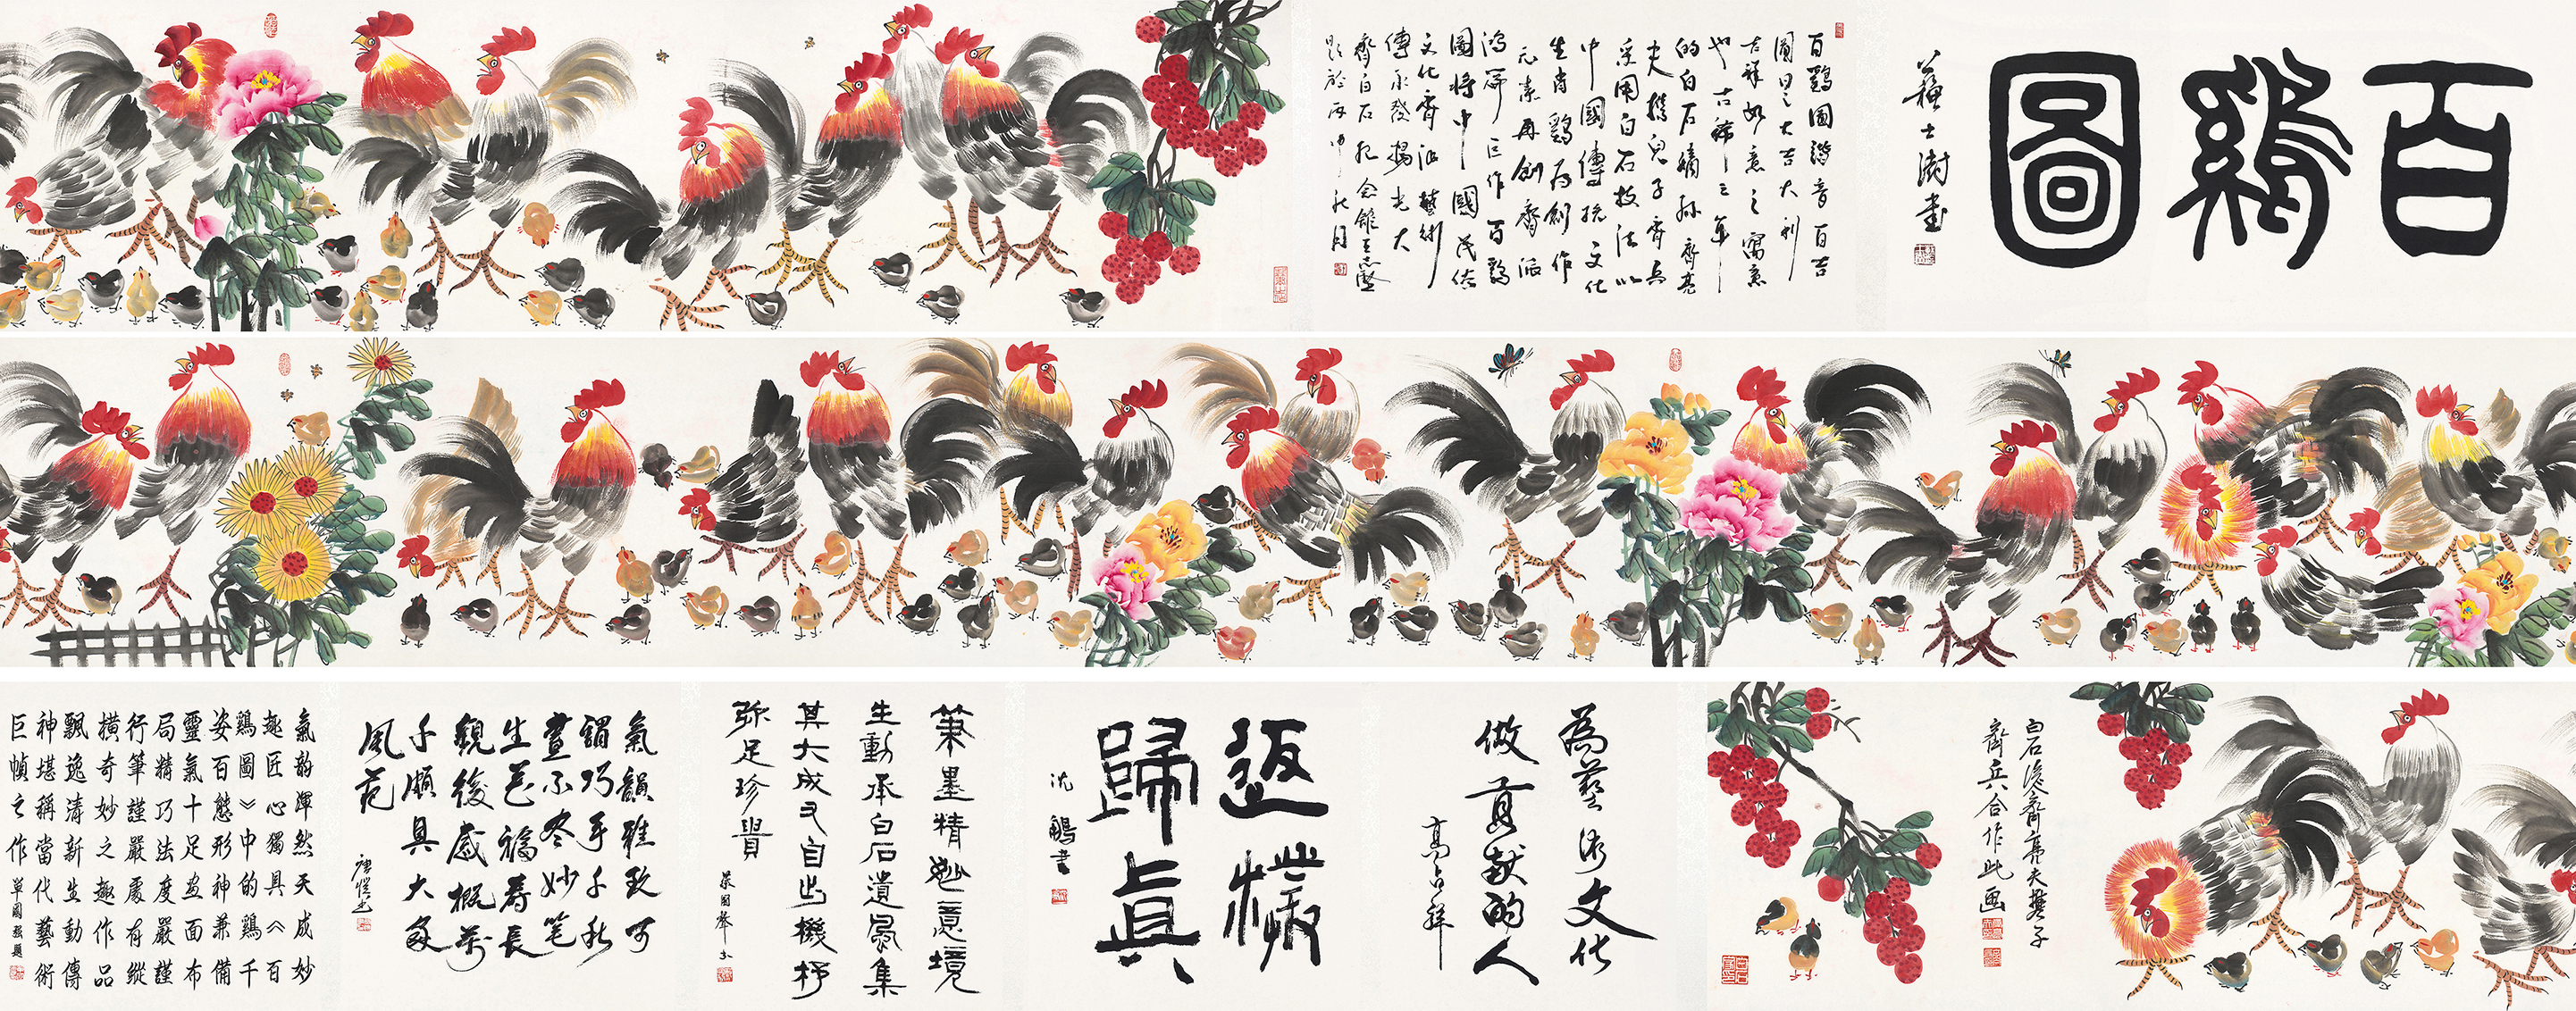 百鷄圖
蘇士澍書
百鷄圖諧音百吉
圖曰之大吉大利
吉祥如意之寓意
也古稀之年
的白石嫡孫齊亮
夫攜兒子齊兵
采用白石技法以
中國傳統文化
生肖鷄為創作
元素再創齊派
鴻篇巨作百鷄
圖將中國民俗
文化齊派藝術
傳承發揚光大
齊白石紀念館王志堅
題於丙申秋月
白石後裔齊亮夫攜子
齊兵合作此画
為藝術文化
做貢献的人
高占祥
返樸
歸真
沈鵬書
筆墨精妙意境
生動承白石遺風集
其大成又自出機杼
弥足珍貴
蔡國聲书
氣韻雅致可
謂巧手千秋
畫不尽妙笔
生花福壽長
觀後感概萬
千頗具大家
風范
氣韵渾然天成妙
趣匠心獨具《百
鷄圖》中的鷄千
姿百態形神兼備
靈氣十足画面布
局精巧法度嚴謹
行筆謹嚴處有縱
橫奇妙之趣作品
飄逸清新生動傳
神堪稱當代藝術
巨幀之作 單國强題